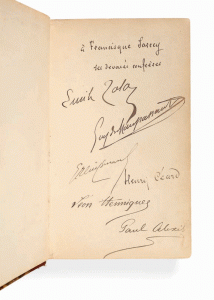 à Francisque Sarcey
ses dévoués confrères
Emile Zola
Guy de Maupassant
JK Huysmans
Henry Céard
Léon Hennique
Paul Alexis